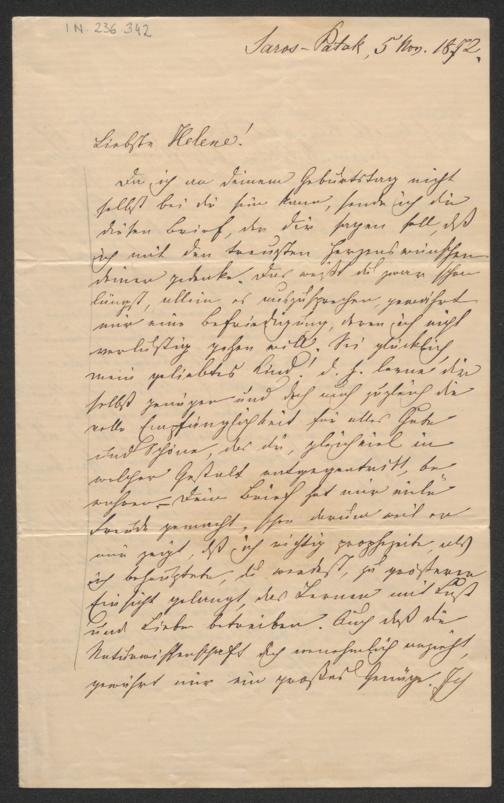 IN. 236.342
Saros-Patak, 5 Nov. 1872.
Liebste Helene!
Da ich an deinem Geburtstag nicht
selbst bei dir sein kann, sende ich dir
diesen Brief, der dir sagen soll, daß
ich mit den treusten Herzenswünschen
deiner gedenke. Das weißt du zwar schon
längst, allein es auszusprechen, gewährt
mir eine Befriedigung, deren ich nicht
verlustig gehen will. Sei glücklich
mein geliebtes Kind! d. h. lerne dir
selbst genügen und doch auch zugleich die
volle Empfänglichkeit für alles Gute
und Schöne, das dir, gleichviel in
welcher Gestalt entgegentritt, be
wahren. – Dein Brief hat mir viele
Freude gemacht, schon darum weil er
mir zeigt, daß ich richtig prophezeite, als
ich behauptete, du werdest, zu größerer
Einsicht gelangt, das Lernen mit Lust
und Liebe betreiben. Auch daß die
Naturwissenschaft dich vernehmlich anzieht,
gewährt mir ein großes Genüge. Ich